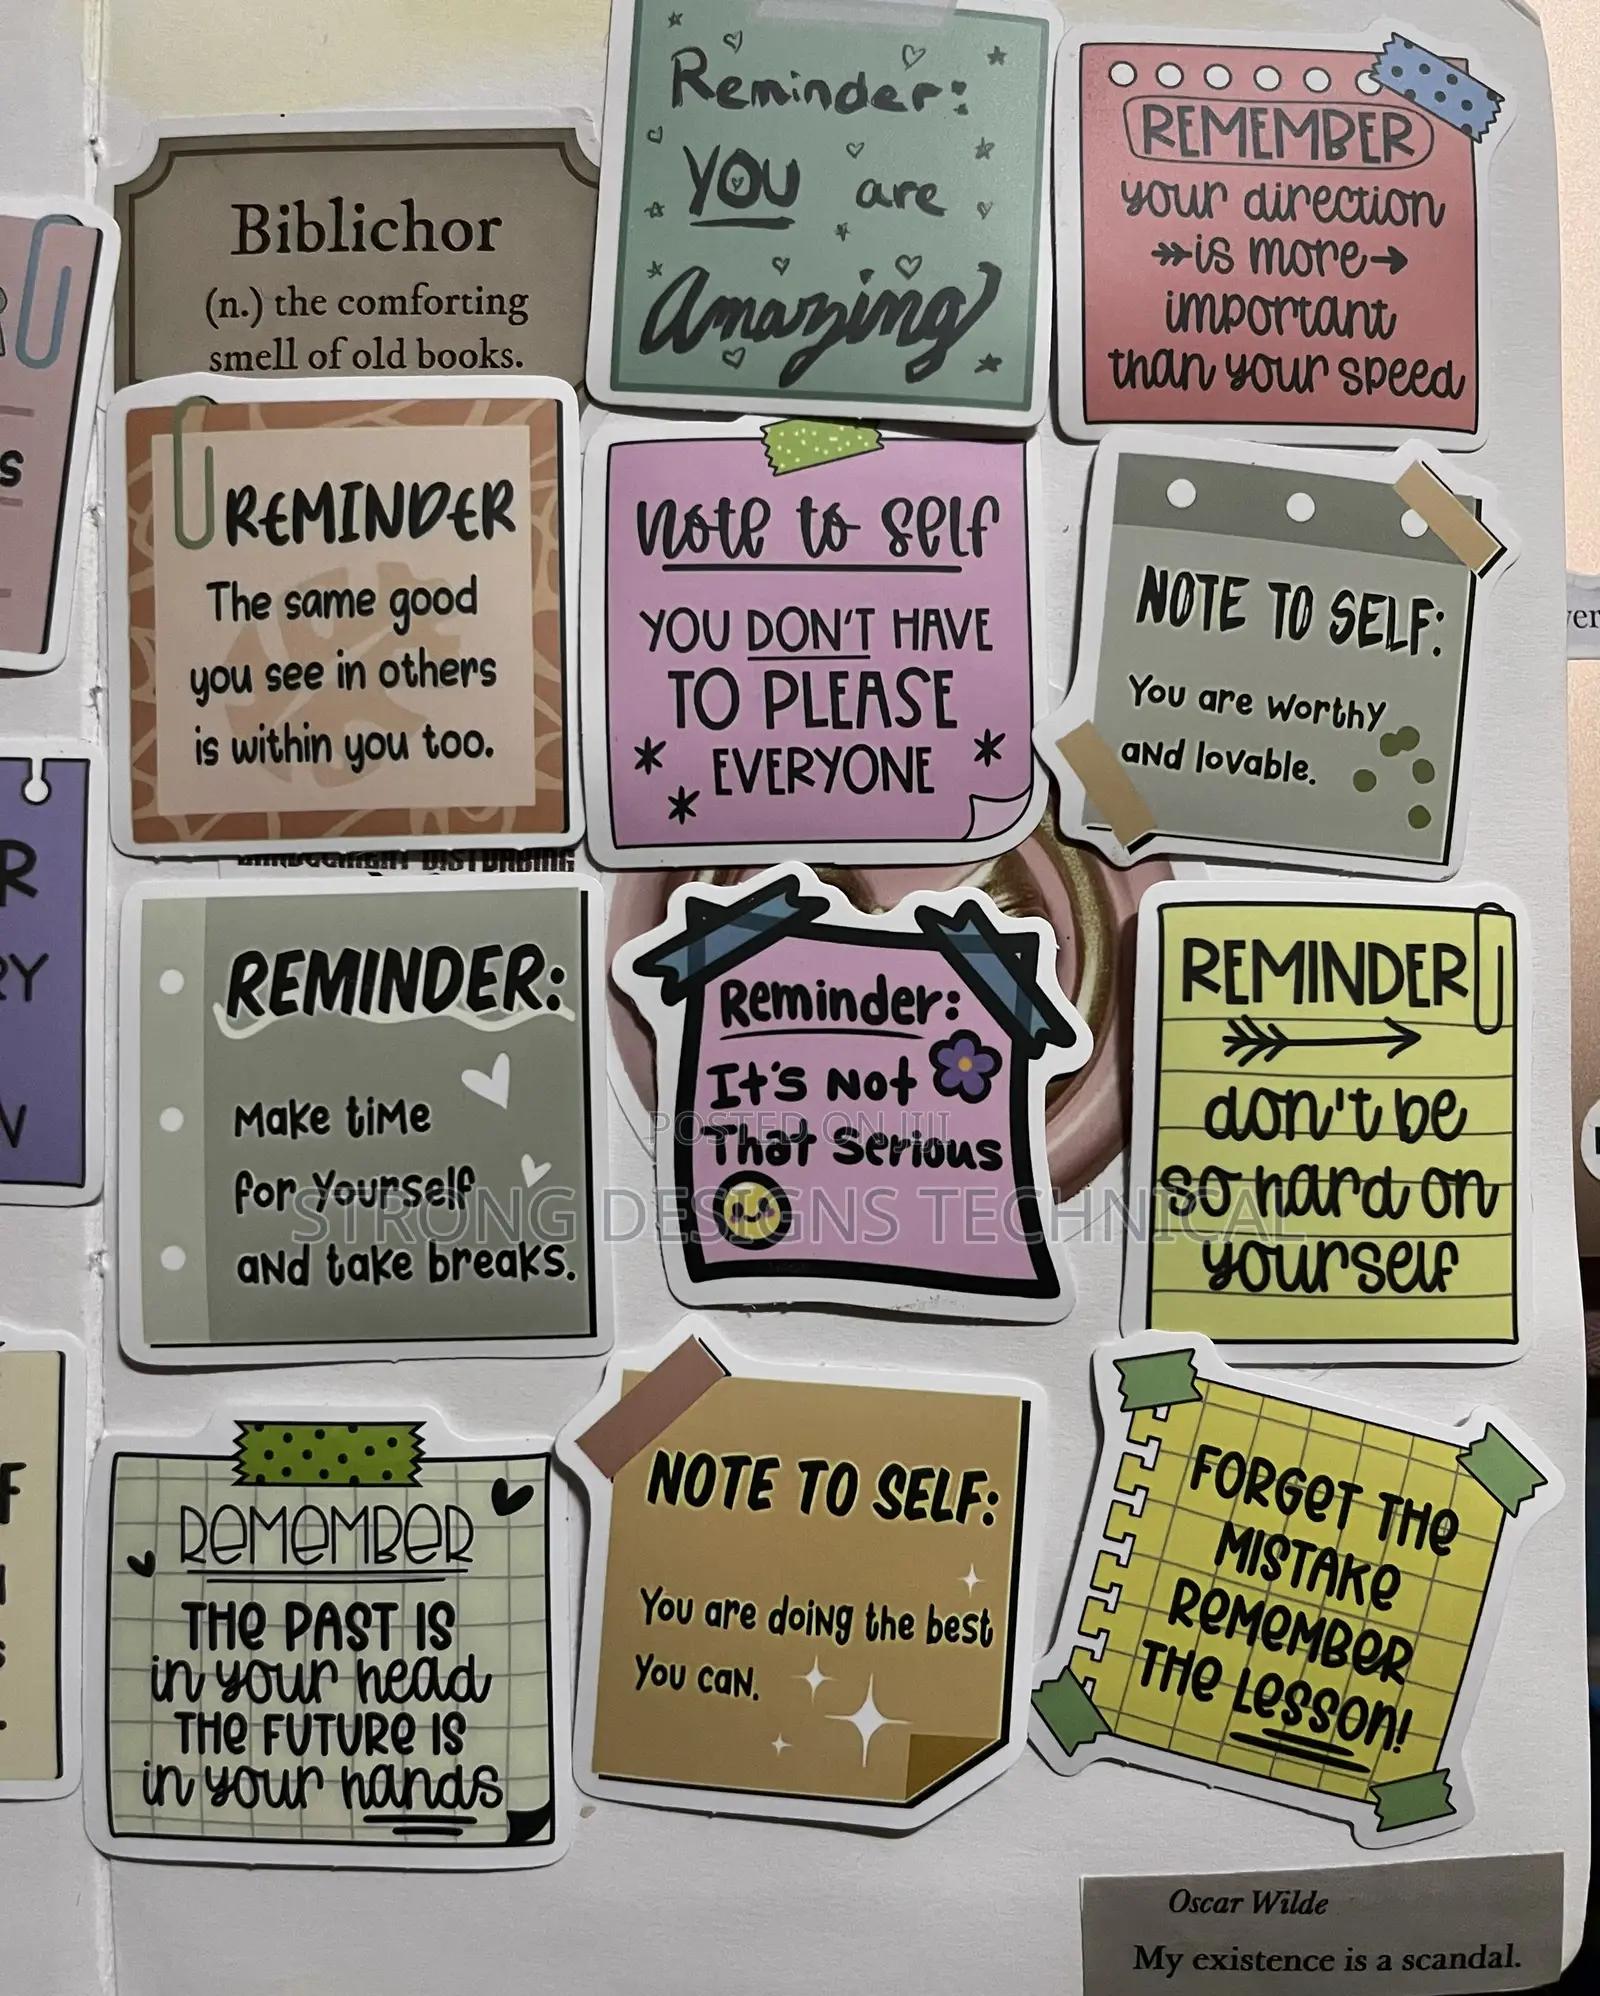 Biblichor
(n.) the comforting
smell of old books.
Reminder:
YOU are
Amazing
REMEMBER
your direction
is more
important
than your speed
REMINDER
The same good
you see in others
is within you too.
note to self
YOU DON'T HAVE
TO PLEASE
EVERYONE
NOTE TO SELF:
You are worthy
and lovable.
REMINDER:
Make time
for yourself
and take breaks.
Reminder:
It's Not
That Serious
REMINDER
don't be
so hard on
yourself
POSTED ON JIJI
STRONG DESIGNS TECHNICAL
REMEMBER
THE PAST IS
in your head
THE FUTURE IS
in your hands
NOTE TO SELF:
You are doing the best
you can.
FORGET THE
MISTAKE
REMEMBER
THE LESSON!
Oscar Wilde
My existence is a scandal.